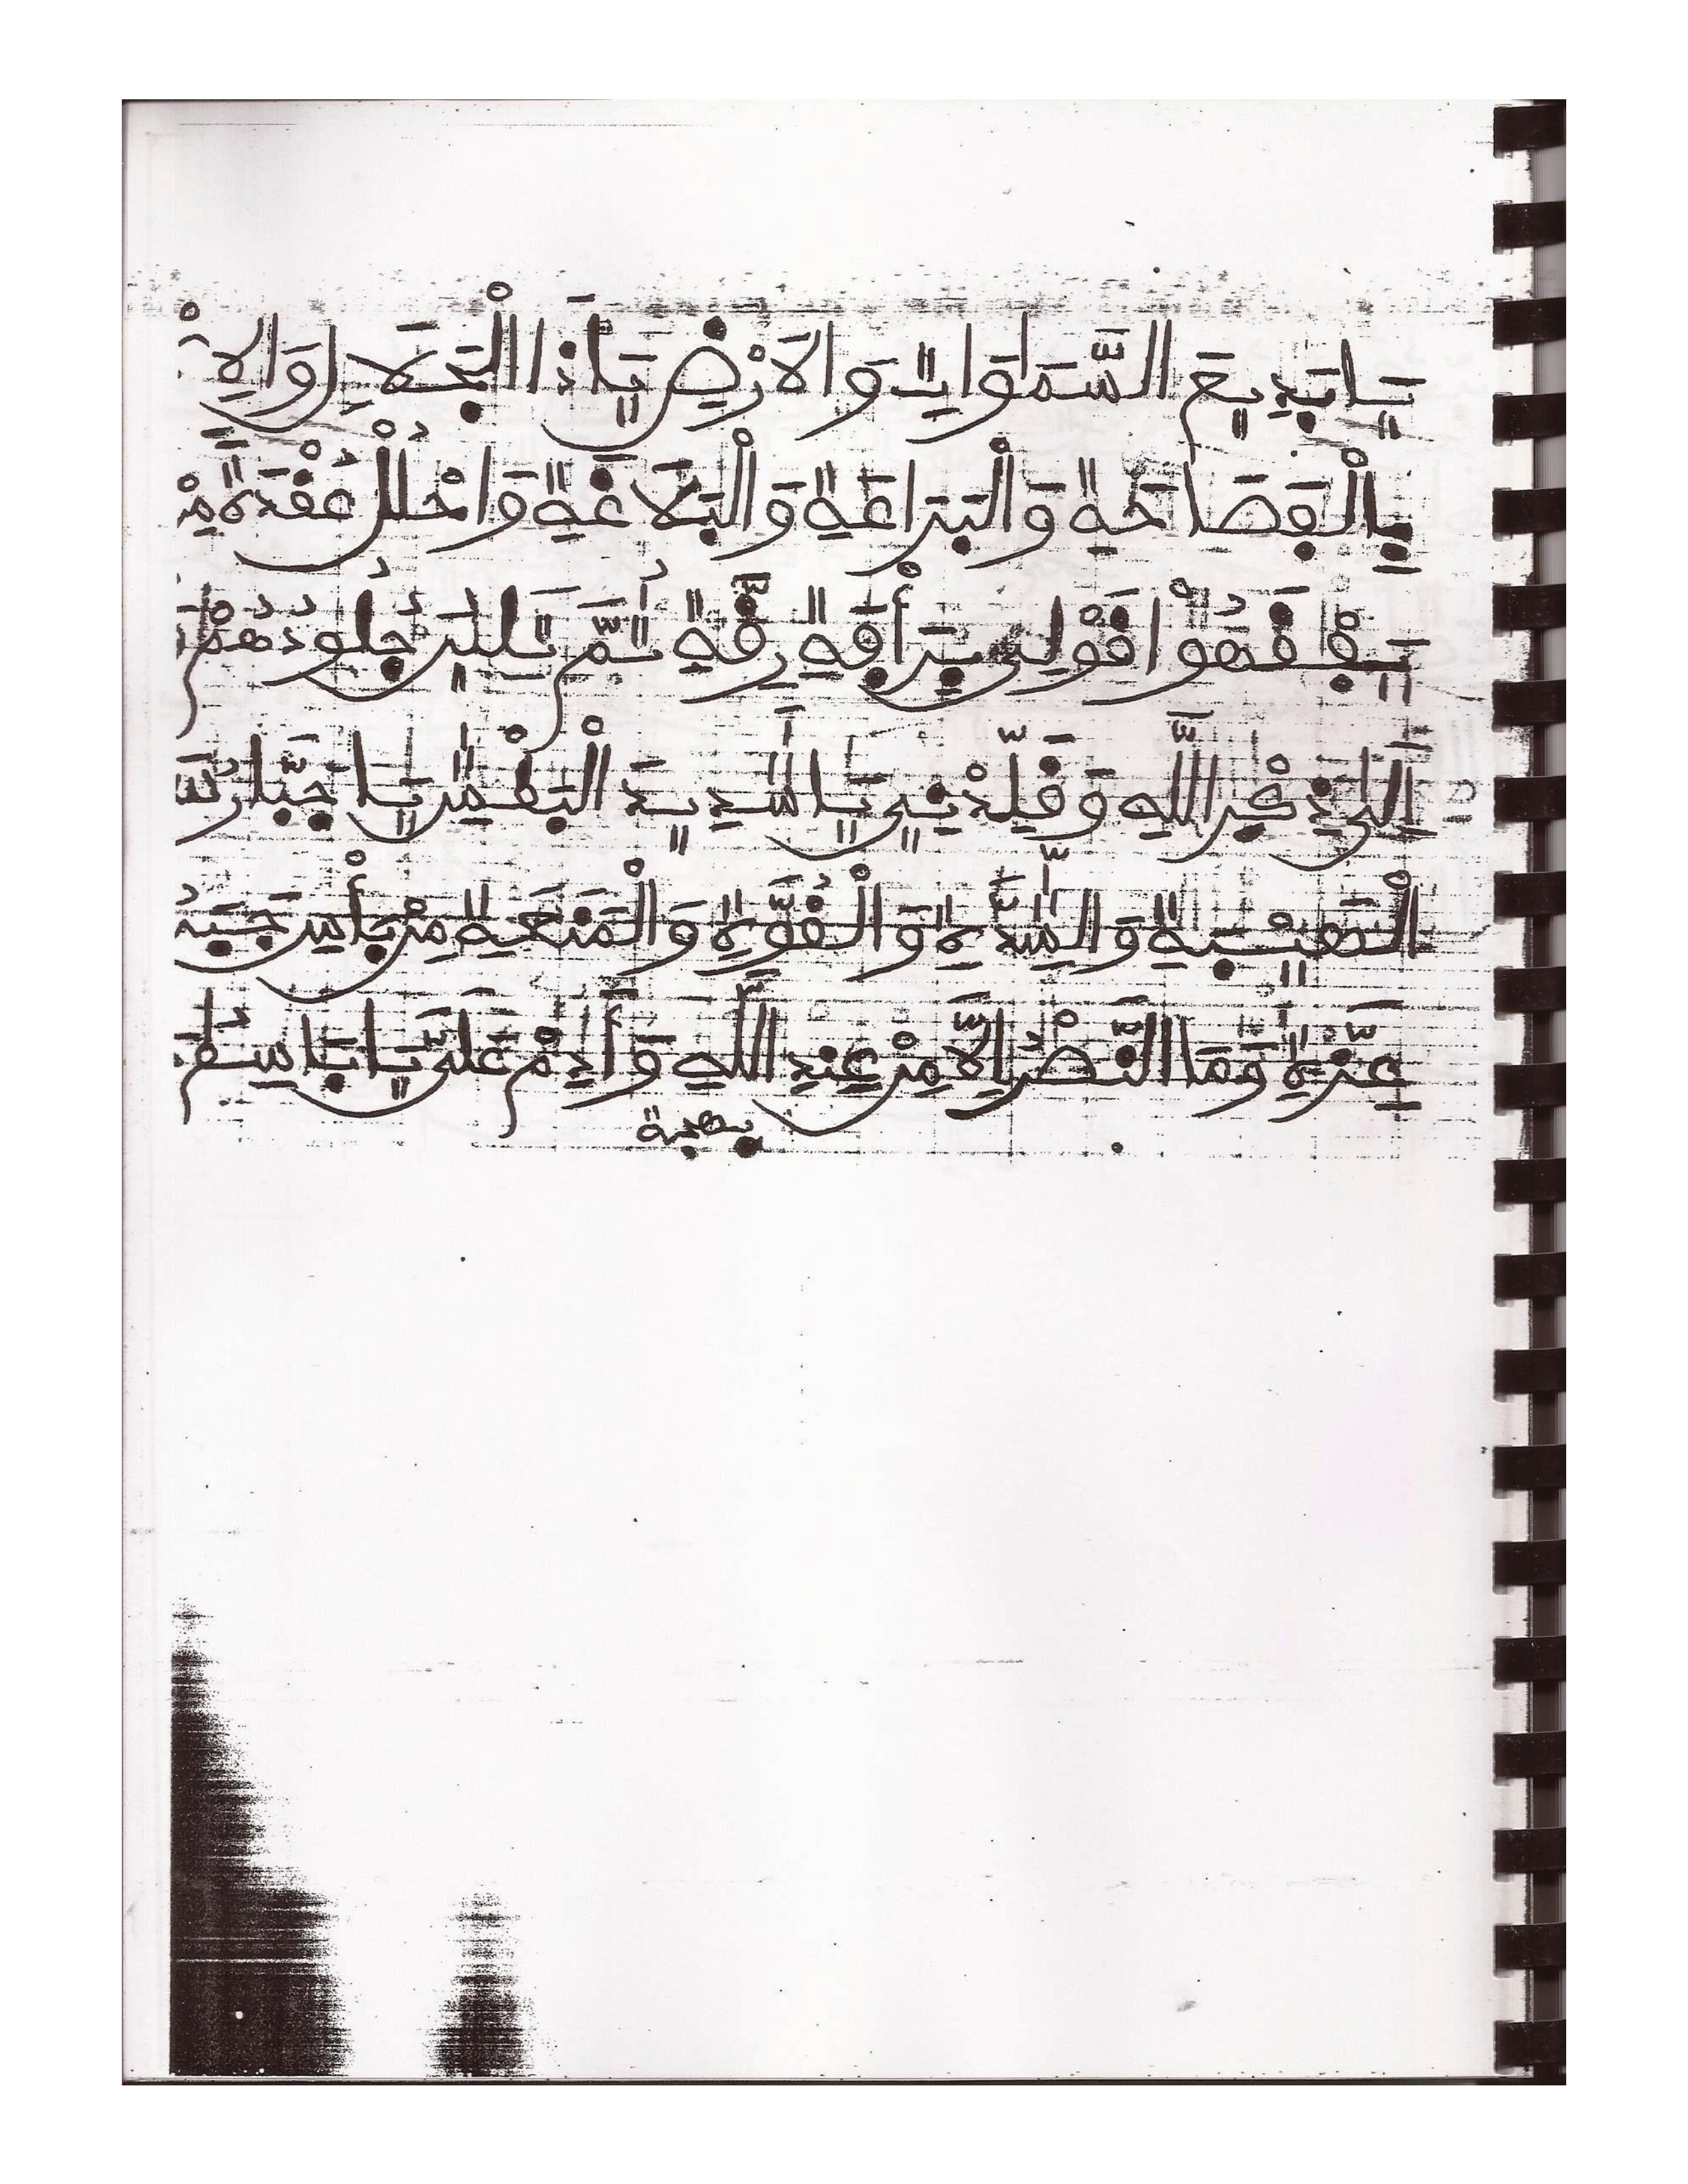 يَا بَدِيعَ السَّمَوَاتِ وَالَارْضِ يَا ذَا الْجَلَالِ وَالِا
بِالْفَصَاحَةِ وَالْبَرَاعَةِ وَالْبَلَاغَةِ وَاحْلُلْ عُقْدَةً مِنْ
يَفْقَهُوا قَوْلِي بِرَأْفَةِ رِقَّةٍ ثُمَّ تَلِينُ جُلُودُهُمْ
إِلَى ذِكْرِ اللَّهِ وَقَلِّدْنِي يَا شَدِيدَ الْبَطْشِ يَا جَبَّارُ
الْهَيْبَةِ وَالشِّدَّةِ وَالْقُوَّةِ وَالْمَنَعَةِ مِنْ بَأْسِ
عِزَّةِ وَمَا النَّصْرُ إِلَّا مِنْ عِنْدِ اللَّهِ وَأَدِمْ عَلَيَّ يَا بَاسِطُ
بهجة